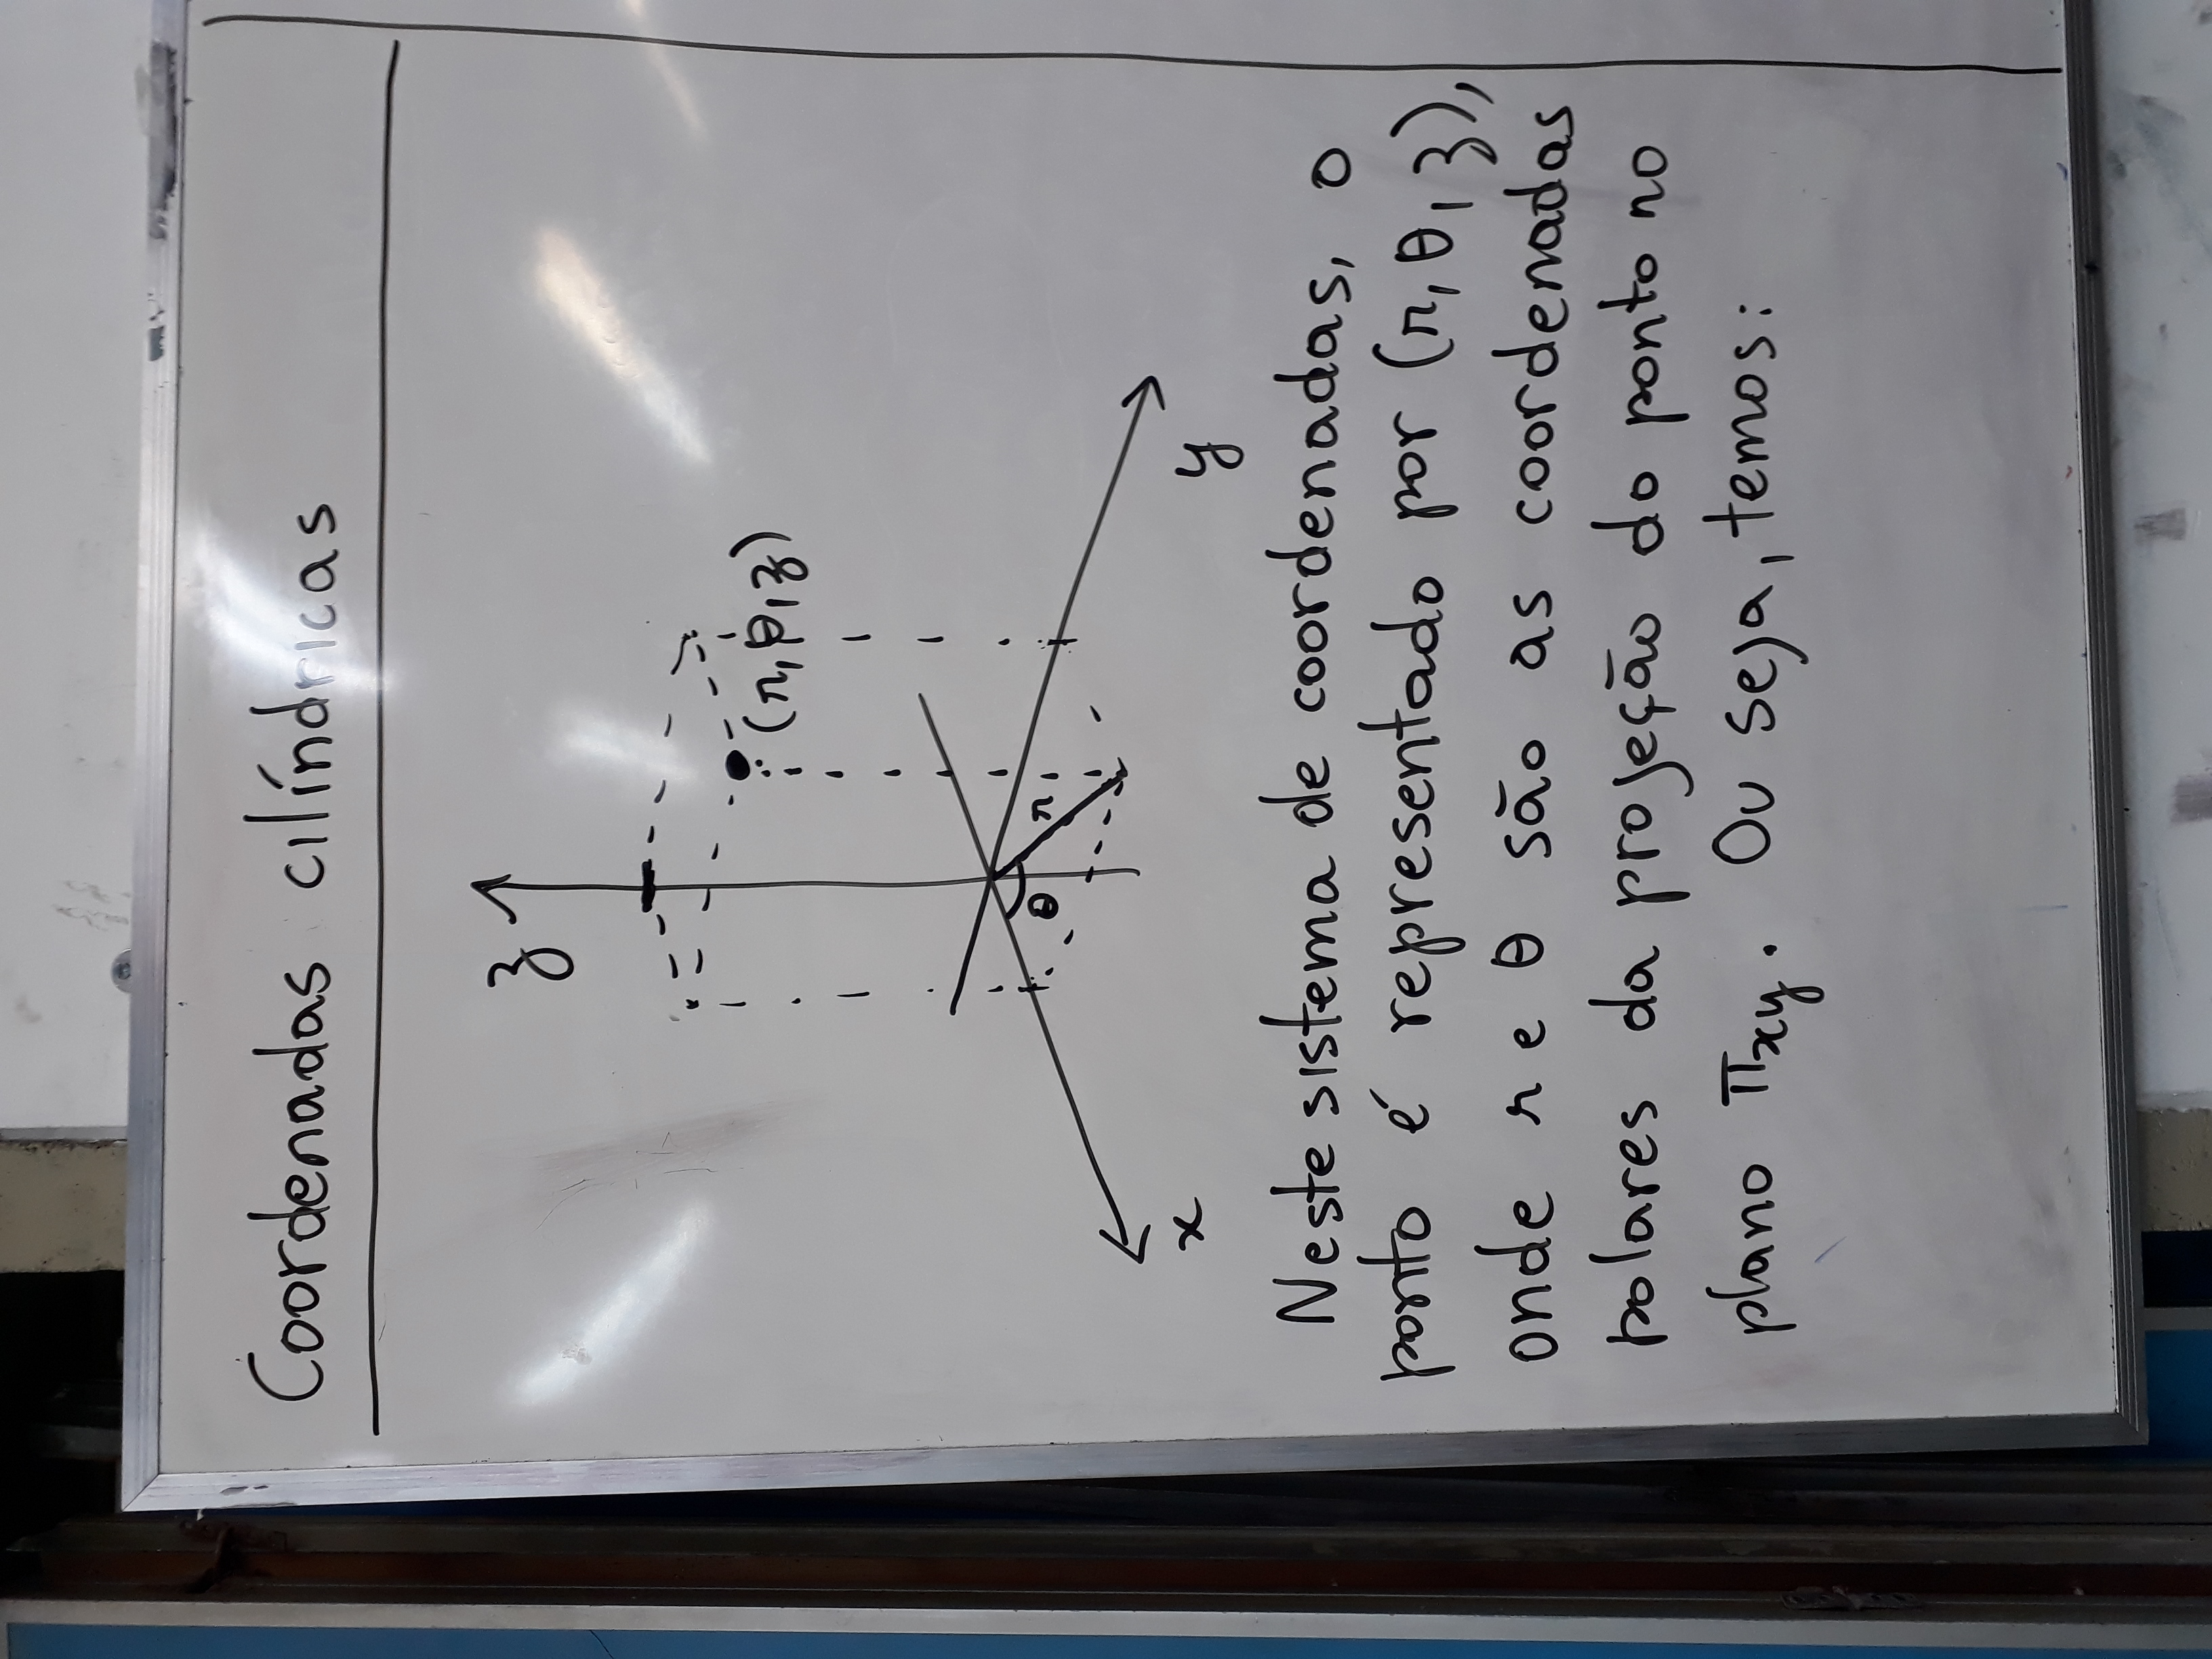 Coordenadas cilíndricas
z
(r, θ, z)
θ r
x
y
Neste sistema de coordenadas, o
ponto é representado por (r, θ, z),
onde r e θ são as coordenadas
polares da projeção do ponto no
plano πxy. Ou seja, temos: